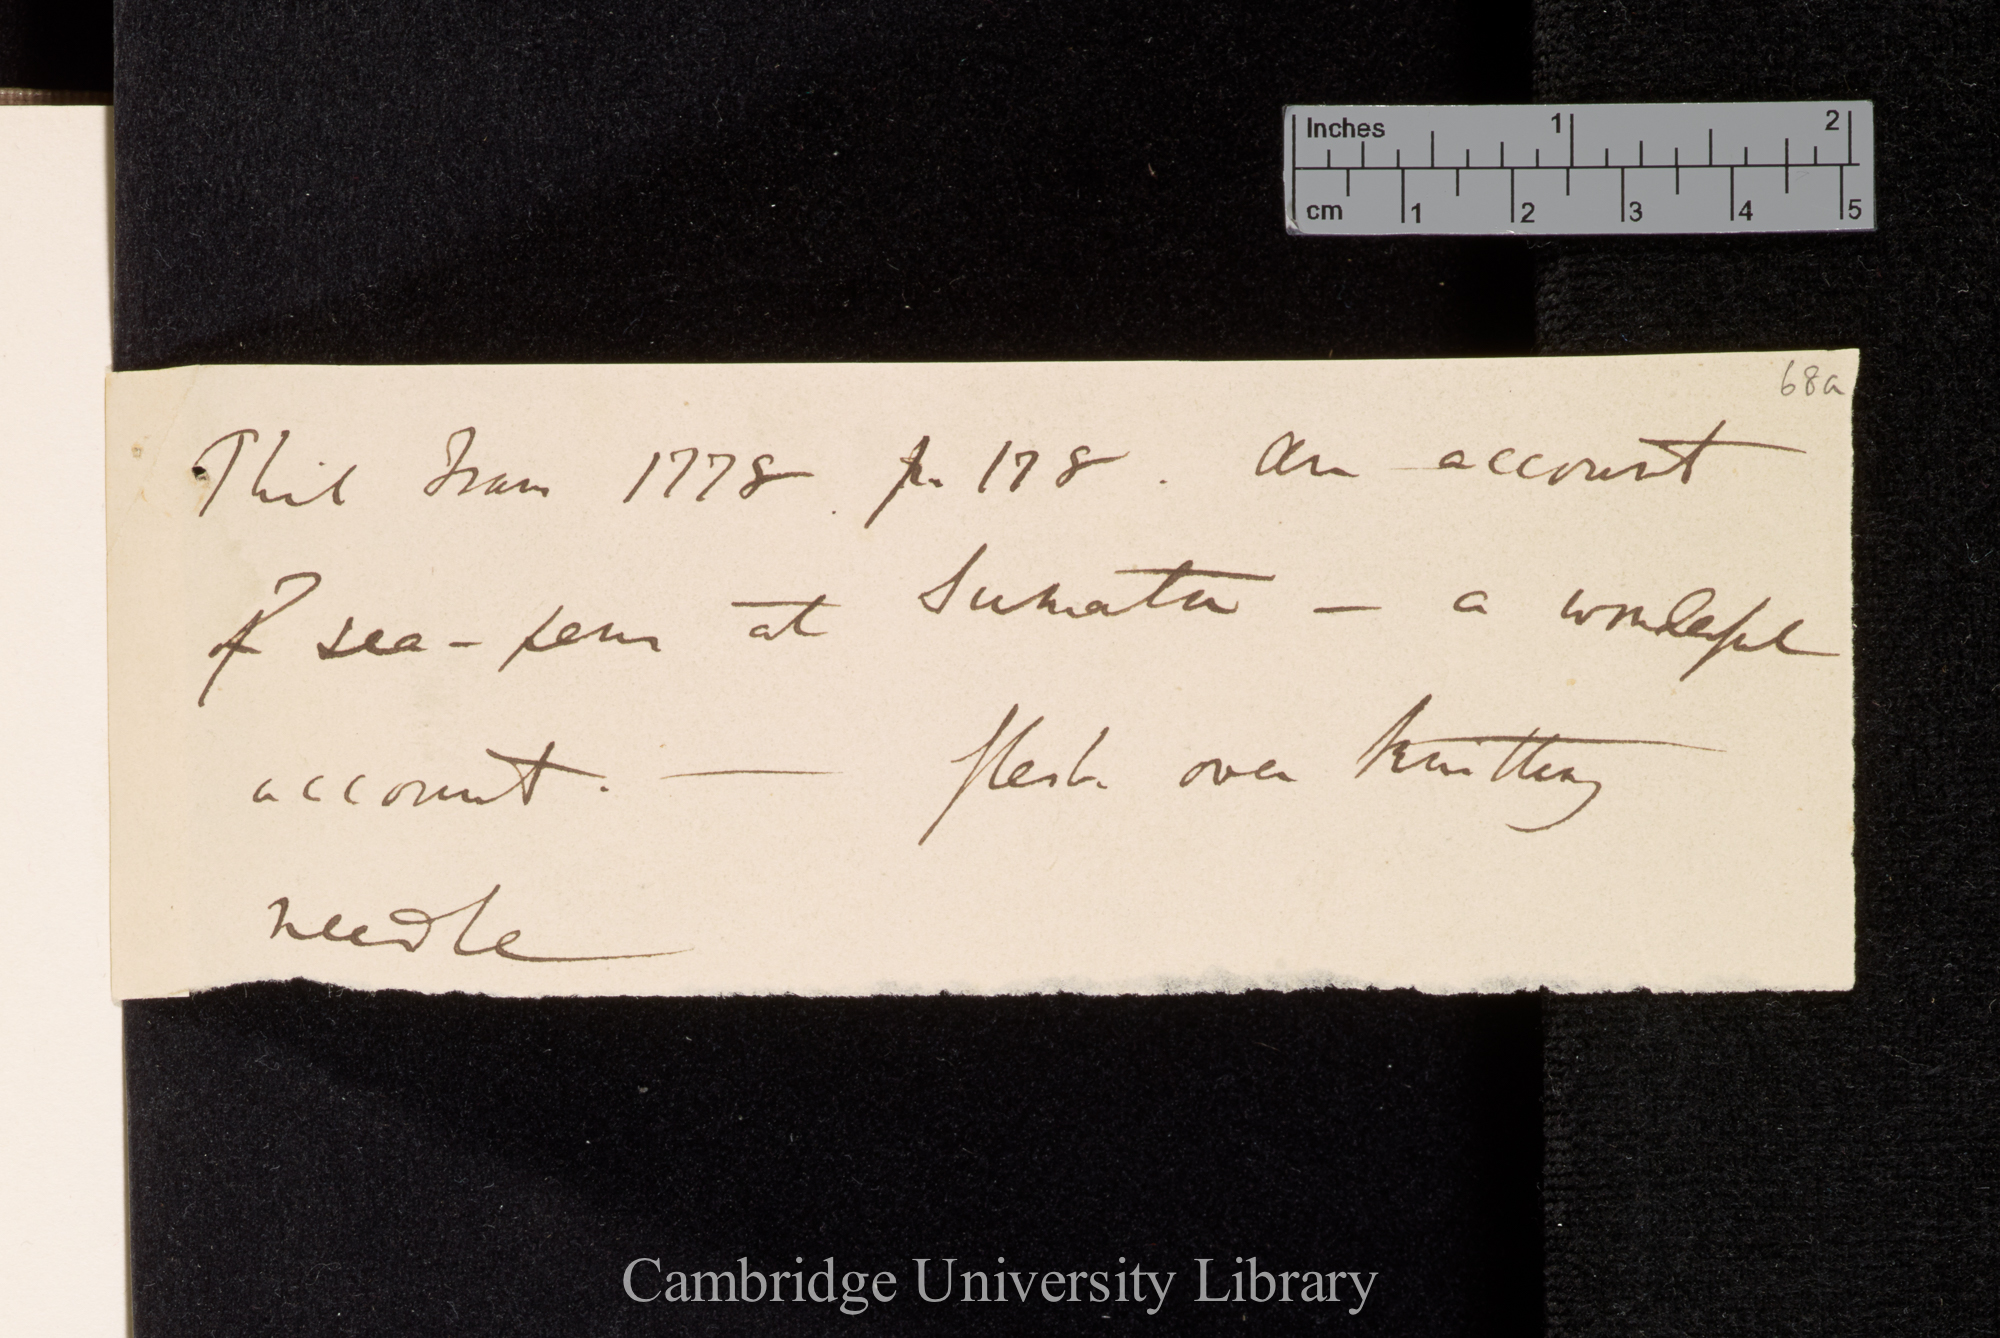 Inches 1 2
cm 1 2 3 4 5
68a
Phil Trans 1778 p. 178. An account
of sea-pens at Sumatra — a wonderful
account. — flesh over knitting
needle
Cambridge University Library